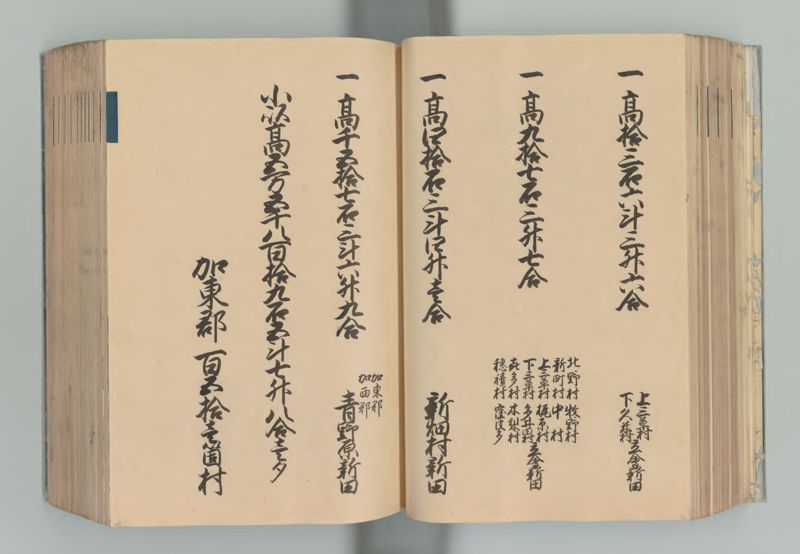 一 高拾三石六斗三升六合
上三草村
下久米村
立会新田
一 高九拾七石三升七合
北野村 牧野村
新町村 中村
上三草村 梶原村
下三草村 多井田村
喜多村 木梨村
穂積村 窪
立会新田
一 高四拾石三斗四升壱合
新畑村新田
一 高千五拾七石三斗六升九合
加東郡
加西郡
青野原新田
小以高五万五千八百拾九石五斗七升八合壱夕
加東郡 百五拾壱箇村